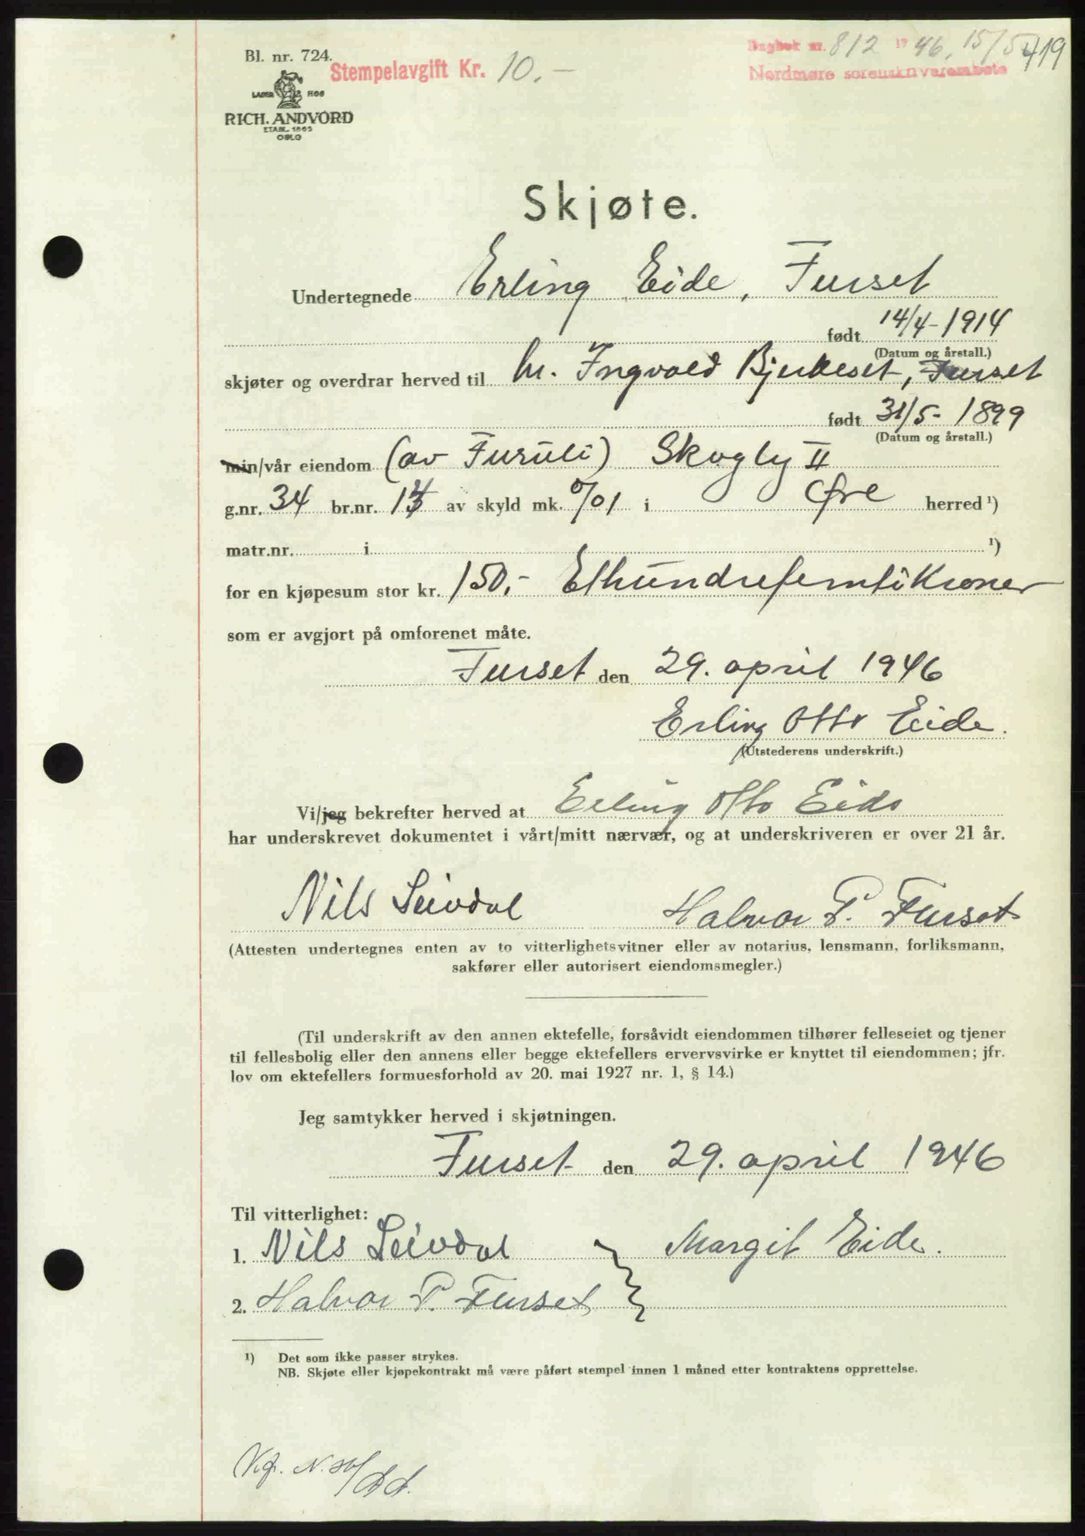 Bl. nr. 724.
Stempelavgift Kr. 10.-
Dagbok nr. 812 19 46, 15/5
419
Nordmøre sorenskriverembete
LAGER HOS
RICH. ANDVORD
ETABL. 1865
OSLO
Skjøte.
Undertegnede Erling Eide, Furset
født 14/4-1914
(Datum og årstall.)
skjøter og overdrar herved til hr. Ingvald Bjerkeset, Furset
født 31/5-1899
(Datum og årstall.)
min/vår eiendom (av Furuli) Skogly II
g.nr. 34 br.nr. 14 av skyld mk. 0/01 i Øre herred ¹)
matr.nr. i ¹)
for en kjøpesum stor kr. 150,- Ethundrefemtikroner
som er avgjort på omforenet måte.
Furset den 29. april 1946
Erling Otto Eide.
(Utstederens underskrift.)
Vi/jeg bekrefter herved at Erling Otto Eide
har underskrevet dokumentet i vårt/mitt nærvær, og at underskriveren er over 21 år.
Nils Leivdal Halvor P. Furset
(Attesten undertegnes enten av to vitterlighetsvitner eller av notarius, lensmann, forliksmann,
sakfører eller autorisert eiendomsmegler.)
(Til underskrift av den annen ektefelle, forsåvidt eiendommen tilhører felleseiet og tjener
til fellesbolig eller den annens eller begge ektefellers ervervsvirke er knyttet til eiendommen; jfr.
lov om ektefellers formuesforhold av 20. mai 1927 nr. 1, § 14.)
Jeg samtykker herved i skjøtningen.
Furset den 29. april 1946
Til vitterlighet:
1. Nils Leivdal Margit Eide.
2. Halvor P. Furset
¹) Det som ikke passer strykes.
NB. Skjøte eller kjøpekontrakt må være påført stempel innen 1 måned etter kontraktens opprettelse.